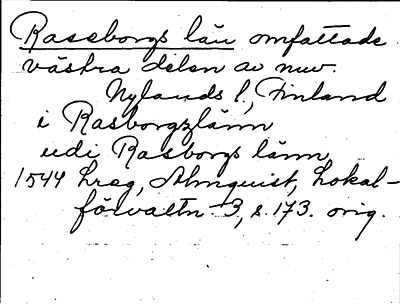 Raseborgs län omfattade
västra delen av nuv.
Nylands l., Finland
i Rasborgzlänn
udi Rasborgs länn
1544 Lreg, Almquist, Lokal-
förvaltn 3, s. 173. orig.